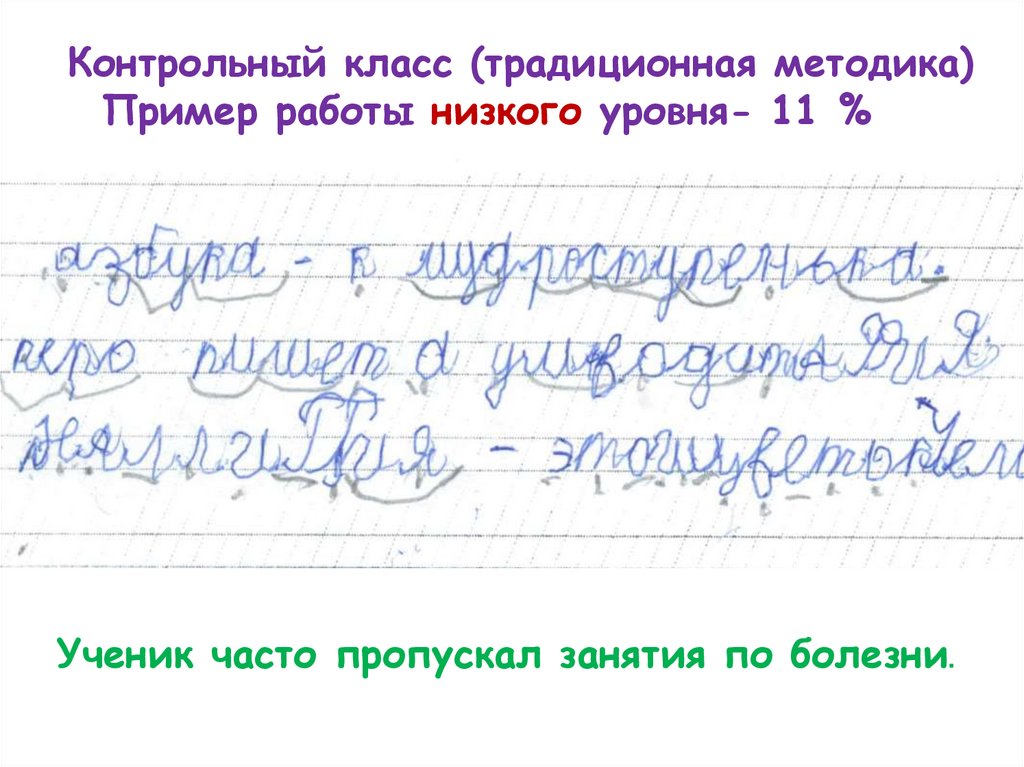 Контрольный класс (традиционная методика)
Пример работы низкого уровня- 11 %
азбука - к мудроступенька.
перо пишет а ум водит
- это
Ученик часто пропускал занятия по болезни.